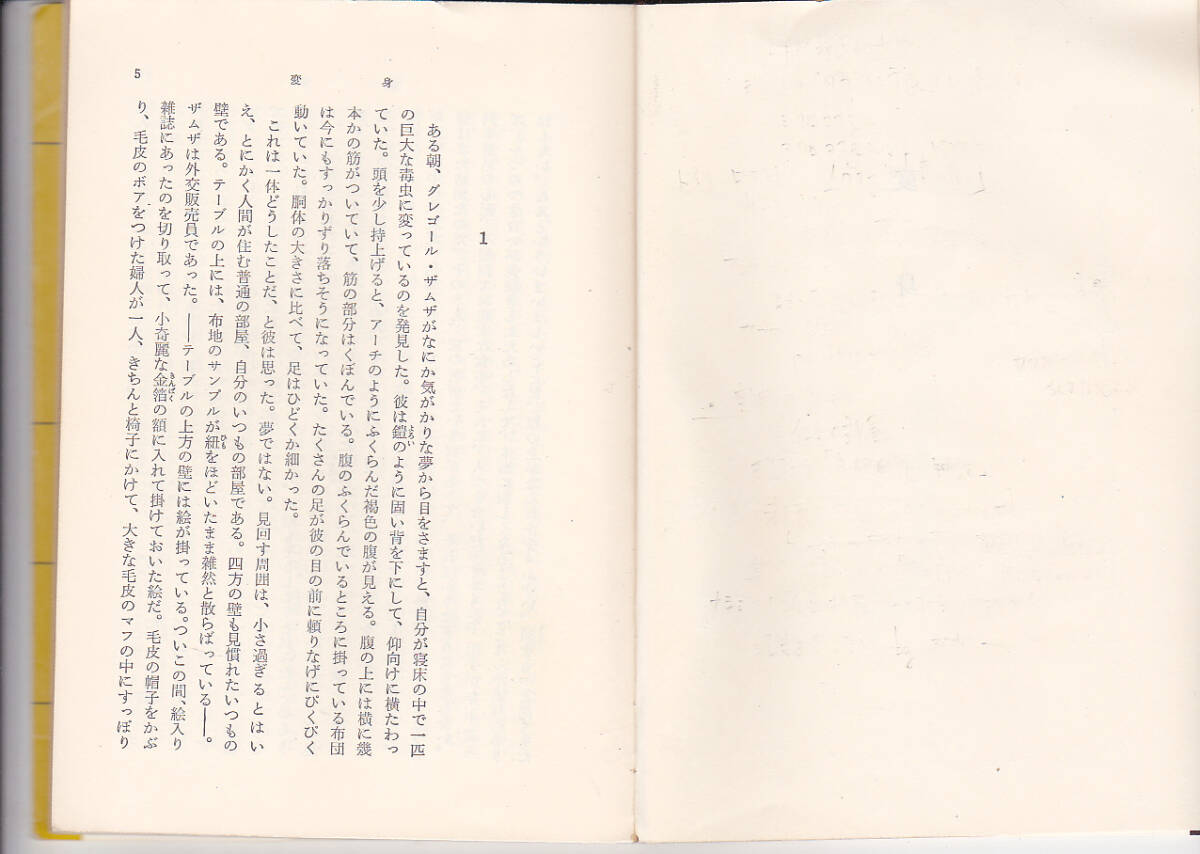 1
ある朝、グレゴール・ザムザがなにか気がかりな夢から目をさますと、自分が寝床の中で一匹
の巨大な毒虫に変っているのを発見した。彼は鎧のように固い背を下にして、仰向けに横たわっ
よろい
ていた。頭を少し持上げると、アーチのようにふくらんだ褐色の腹が見える。腹の上には横に幾
本かの筋がついていて、筋の部分はくぼんでいる。腹のふくらんでいるところに掛っている布団
は今にもすっかりずり落ちそうになっていた。たくさんの足が彼の目の前に頼りなげにぴくぴく
動いていた。胴体の大きさに比べて、足はひどくか細かった。
これは一体どうしたことだ、と彼は思った。夢ではない。見回す周囲は、小さ過ぎるとはい
え、とにかく人間が住む普通の部屋、自分のいつもの部屋である。四方の壁も見慣れたいつもの
壁である。テーブルの上には、布地のサンプルが紐をほどいたまま雑然と散らばっている——。
ひも
ザムザは外交販売員であった。——テーブルの上方の壁には絵が掛っている。ついこの間、絵入り
雑誌にあったのを切り取って、小奇麗な金箔の額に入れて掛けておいた絵だ。毛皮の帽子をかぶ
きんぱく
り、毛皮のボアをつけた婦人が一人、きちんと椅子にかけて、大きな毛皮のマフの中にすっぽり
変身
5